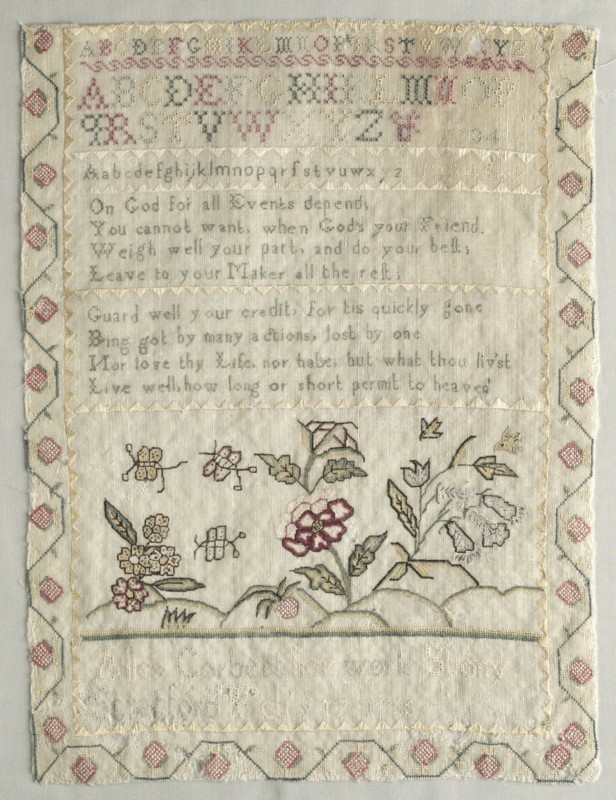 ABCDEFGHIKLMNOPQRSTVWXYZ
ABCDEFGHIKLMNOP
QRSTVWXYZ
Aabcdefghijklmnopqrſstvuwxyz
On God for all Events depend,
You cannot want, when God's your Friend.
Weigh well your part, and do your beſt;
Leave to your Maker all the reſt;
Guard well your credit, for tis quickly gone
Bing got by many actions, lost by one
Nor love thy Life, nor hate, but what thou liv'st
Live well, how long or short permit to heaven
Corbett her work